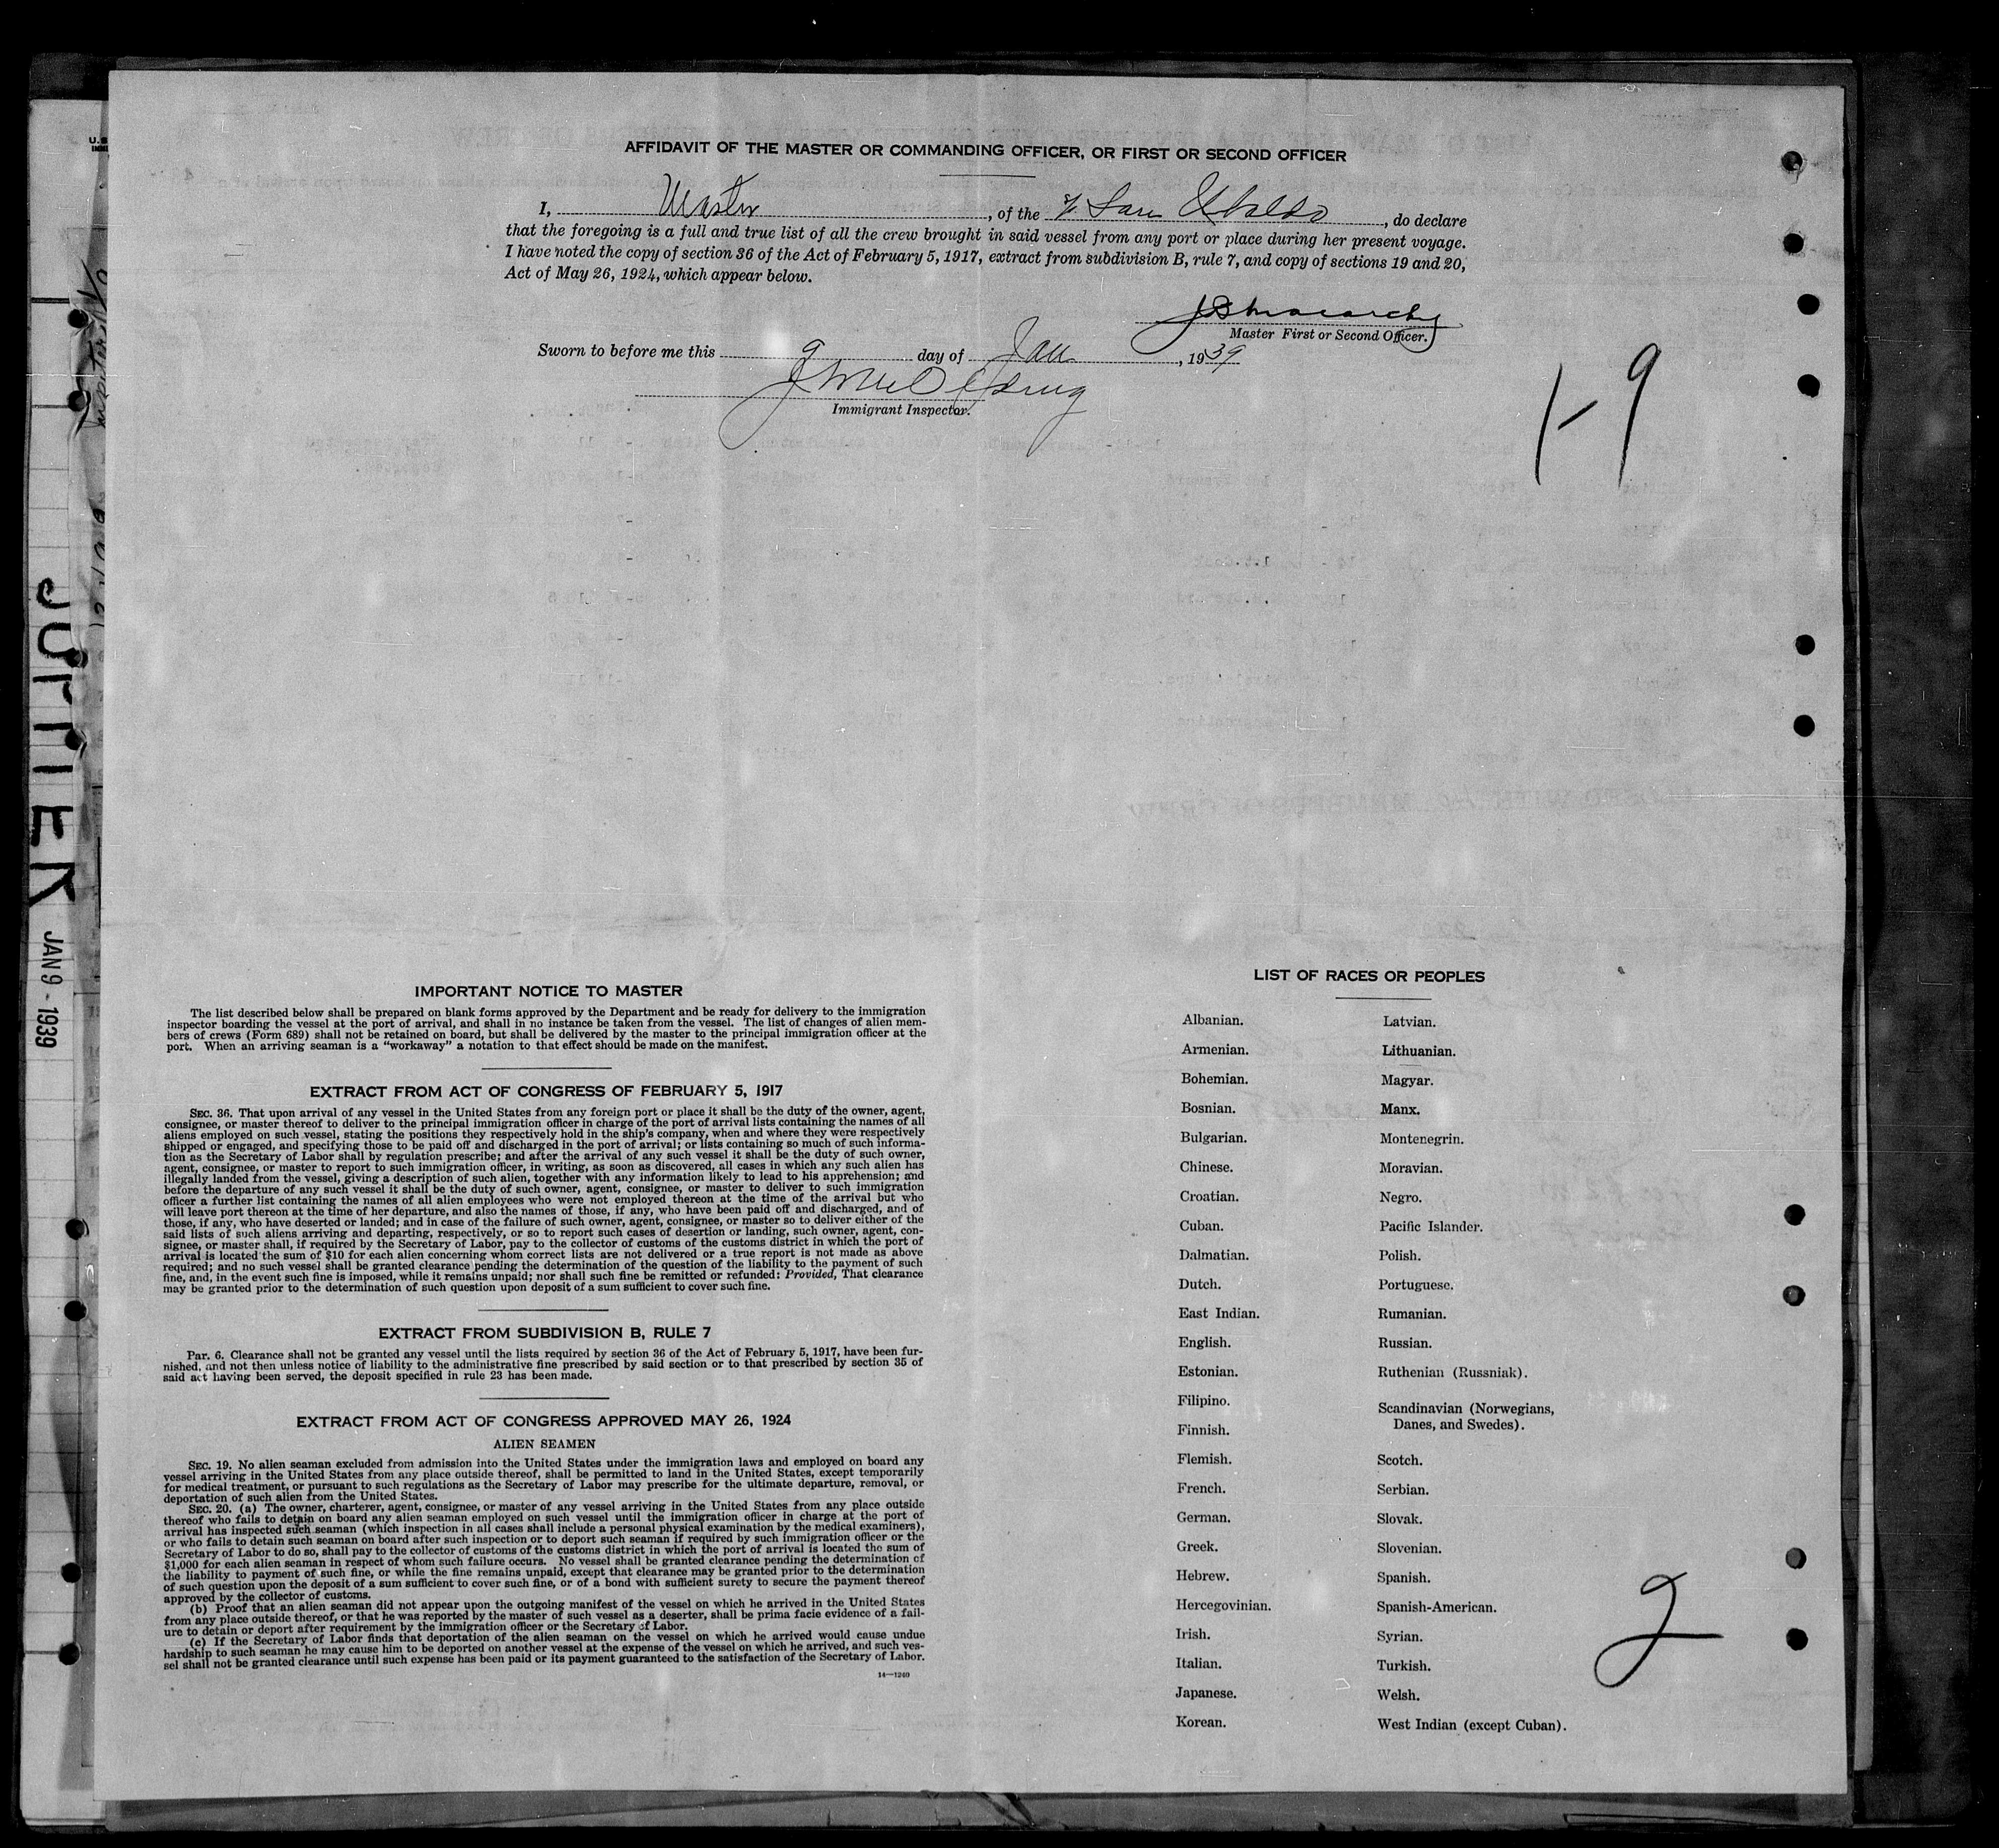 AFFIDAVIT OF THE MASTER OR COMMANDING OFFICER, OR FIRST OR SECOND OFFICER
I, Master, of the San Ubaldo, do declare
that the foregoing is a full and true list of all the crew brought in said vessel from any port or place during her present voyage.
I have noted the copy of section 36 of the Act of February 5, 1917, extract from subdivision B, rule 7, and copy of sections 19 and 20,
Act of May 26, 1924, which appear below.
Master First or Second Officer.
Sworn to before me this 9 day of Jan, 1939
Immigrant Inspector.
1-9
JUPITER
JAN 9 - 1939
IMPORTANT NOTICE TO MASTER
The list described below shall be prepared on blank forms approved by the Department and be ready for delivery to the immigration
inspector boarding the vessel at the port of arrival, and shall in no instance be taken from the vessel. The list of changes of alien mem-
bers of crews (Form 689) shall not be retained on board, but shall be delivered by the master to the principal immigration officer at the
port. When an arriving seaman is a "workaway" a notation to that effect should be made on the manifest.
EXTRACT FROM ACT OF CONGRESS OF FEBRUARY 5, 1917
SEC. 36. That upon arrival of any vessel in the United States from any foreign port or place it shall be the duty of the owner, agent,
consignee, or master thereof to deliver to the principal immigration officer in charge of the port of arrival lists containing the names of all
aliens employed on such vessel, stating the positions they respectively hold in the ship's company, when and where they were respectively
shipped or engaged, and specifying those to be paid off and discharged in the port of arrival; or lists containing so much of such informa-
tion as the Secretary of Labor shall by regulation prescribe; and after the arrival of any such vessel it shall be the duty of such owner,
agent, consignee, or master to report to such immigration officer, in writing, as soon as discovered, all cases in which any such alien has
illegally landed from the vessel, giving a description of such alien, together with any information likely to lead to his apprehension; and
before the departure of any such vessel it shall be the duty of such owner, agent, consignee, or master to deliver to such immigration
officer a further list containing the names of all alien employees who were not employed thereon at the time of the arrival but who
will leave port thereon at the time of her departure, and also the names of those, if any, who have been paid off and discharged, and of
those, if any, who have deserted or landed; and in case of the failure of such owner, agent, consignee, or master so to deliver either of the
said lists of such aliens arriving and departing, respectively, or so to report such cases of desertion or landing, such owner, agent, con-
signee, or master shall, if required by the Secretary of Labor, pay to the collector of customs of the customs district in which the port of
arrival is located the sum of $10 for each alien concerning whom correct lists are not delivered or a true report is not made as above
required; and no such vessel shall be granted clearance pending the determination of the question of the liability to the payment of such
fine, and, in the event such fine is imposed, while it remains unpaid; nor shall such fine be remitted or refunded: Provided, That clearance
may be granted prior to the determination of such question upon deposit of a sum sufficient to cover such fine.
EXTRACT FROM SUBDIVISION B, RULE 7
Par. 6. Clearance shall not be granted any vessel until the lists required by section 36 of the Act of February 5, 1917, have been fur-
nished, and not then unless notice of liability to the administrative fine prescribed by said section or to that prescribed by section 35 of
said act having been served, the deposit specified in rule 23 has been made.
EXTRACT FROM ACT OF CONGRESS APPROVED MAY 26, 1924
ALIEN SEAMEN
SEC. 19. No alien seaman excluded from admission into the United States under the immigration laws and employed on board any
vessel arriving in the United States from any place outside thereof, shall be permitted to land in the United States, except temporarily
for medical treatment, or pursuant to such regulations as the Secretary of Labor may prescribe for the ultimate departure, removal, or
deportation of such alien from the United States.
SEC. 20. (a) The owner, charterer, agent, consignee, or master of any vessel arriving in the United States from any place outside
thereof who fails to detain on board any alien seaman employed on such vessel until the immigration officer in charge at the port of
arrival has inspected such seaman (which inspection in all cases shall include a personal physical examination by the medical examiners),
or who fails to detain such seaman on board after such inspection or to deport such seaman if required by such immigration officer or the
Secretary of Labor to do so, shall pay to the collector of customs of the customs district in which the port of arrival is located the sum of
$1,000 for each alien seaman in respect of whom such failure occurs. No vessel shall be granted clearance pending the determination of
the liability to payment of such fine, or while the fine remains unpaid, except that clearance may be granted prior to the determination
of such question upon the deposit of a sum sufficient to cover such fine, or of a bond with sufficient surety to secure the payment thereof
approved by the collector of customs.
(b) Proof that an alien seaman did not appear upon the outgoing manifest of the vessel on which he arrived in the United States
from any place outside thereof, or that he was reported by the master of such vessel as a deserter, shall be prima facie evidence of a fail-
ure to detain or deport after requirement by the immigration officer or the Secretary of Labor.
(c) If the Secretary of Labor finds that deportation of the alien seaman on the vessel on which he arrived would cause undue
hardship to such seaman he may cause him to be deported on another vessel at the expense of the vessel on which he arrived, and such ves-
sel shall not be granted clearance until such expense has been paid or its payment guaranteed to the satisfaction of the Secretary of Labor.
14—1240
LIST OF RACES OR PEOPLES
Albanian.
Armenian.
Bohemian.
Bosnian.
Bulgarian.
Chinese.
Croatian.
Cuban.
Dalmatian.
Dutch.
East Indian.
English.
Estonian.
Filipino.
Finnish.
Flemish.
French.
German.
Greek.
Hebrew.
Hercegovinian.
Irish.
Italian.
Japanese.
Korean.
Latvian.
Lithuanian.
Magyar.
Manx.
Montenegrin.
Moravian.
Negro.
Pacific Islander.
Polish.
Portuguese.
Rumanian.
Russian.
Ruthenian (Russniak).
Scandinavian (Norwegians,
Danes, and Swedes).
Scotch.
Serbian.
Slovak.
Slovenian.
Spanish.
Spanish-American.
Syrian.
Turkish.
Welsh.
West Indian (except Cuban).
2